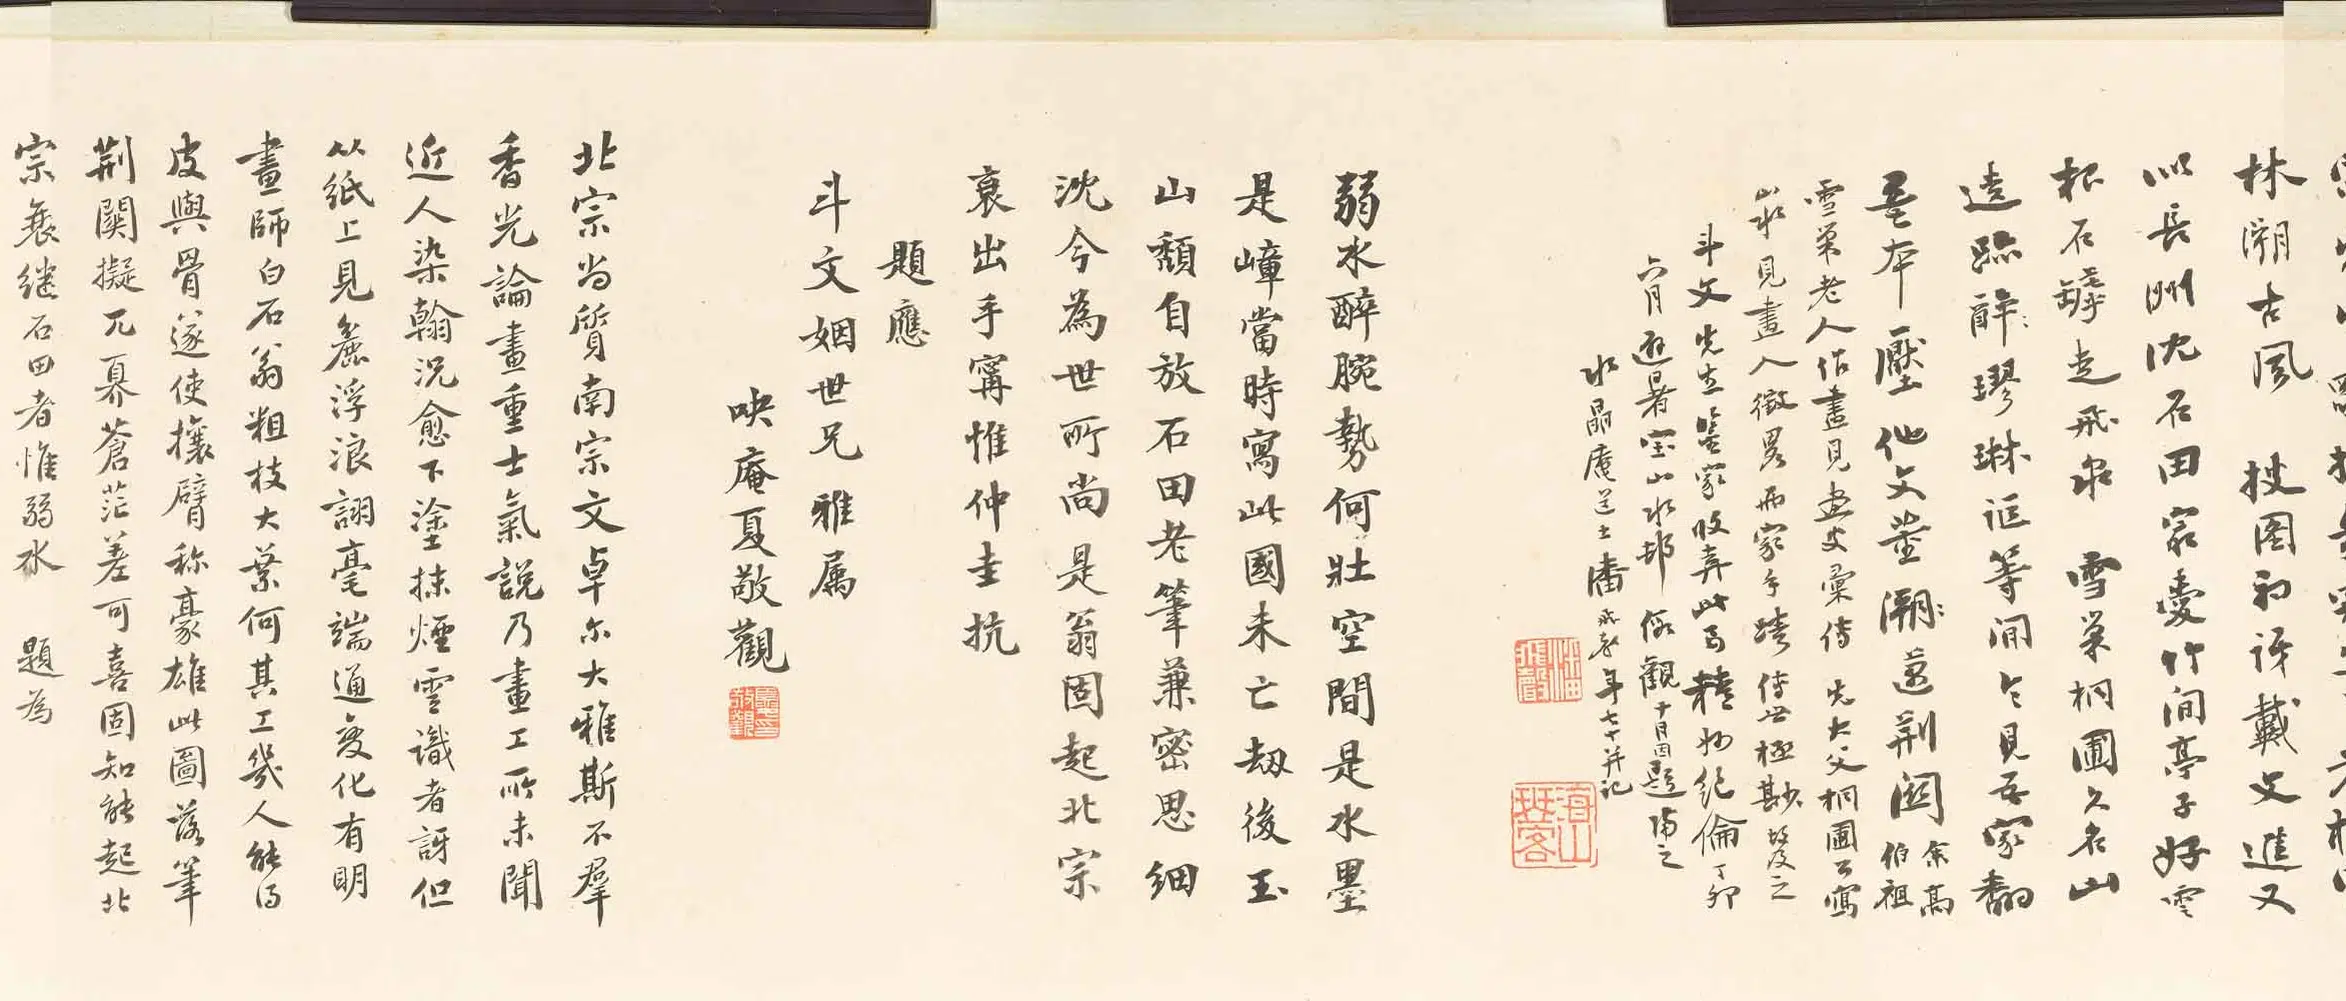 林淵古風 披图初讶戴文進又
以長洲沈石田家愛竹间亭子好雲
根石罅走飛泉 雪巢桐圃久名山
遠跡解璆琳詎等闲今見吾家翻
墨本壓他文董溯荊関 余高伯祖
雪巢老人作畫見畫史彙傳 先大父桐圃公寫
山水見畫入徵畧而家手蹟傳世極尠故及之
斗文先生鑒家收弆此易精物絕倫丁卯
六月避暑寶山水邨假觀十日因題請之
水晶庵道士潘飛聲年七十并記
弱水醉腕勢何壯空間是水墨
是嶂當時寫此國未亡劫後玉
山頹自放石田老筆兼密思細
沈今為世所尚是翁固起北宗
衰出手寗惟仲圭抗
題應
斗文姻世兄雅属
吷庵夏敬觀
北宗尚質南宗文卓尔大雅斯不羣
香光論畫重士氣說乃畫工所未聞
近人染翰況愈下塗抹煙雲識者訝但
從紙上見麤浮浪詡毫端通變化有明
畫師白石翁粗枝大葉何其工幾人能得
皮與骨遂使攘臂称豪雄此圖落筆
荆關擬兀奡蒼茫差可喜固知能起北
宗衰继石田者惟弱水 題為